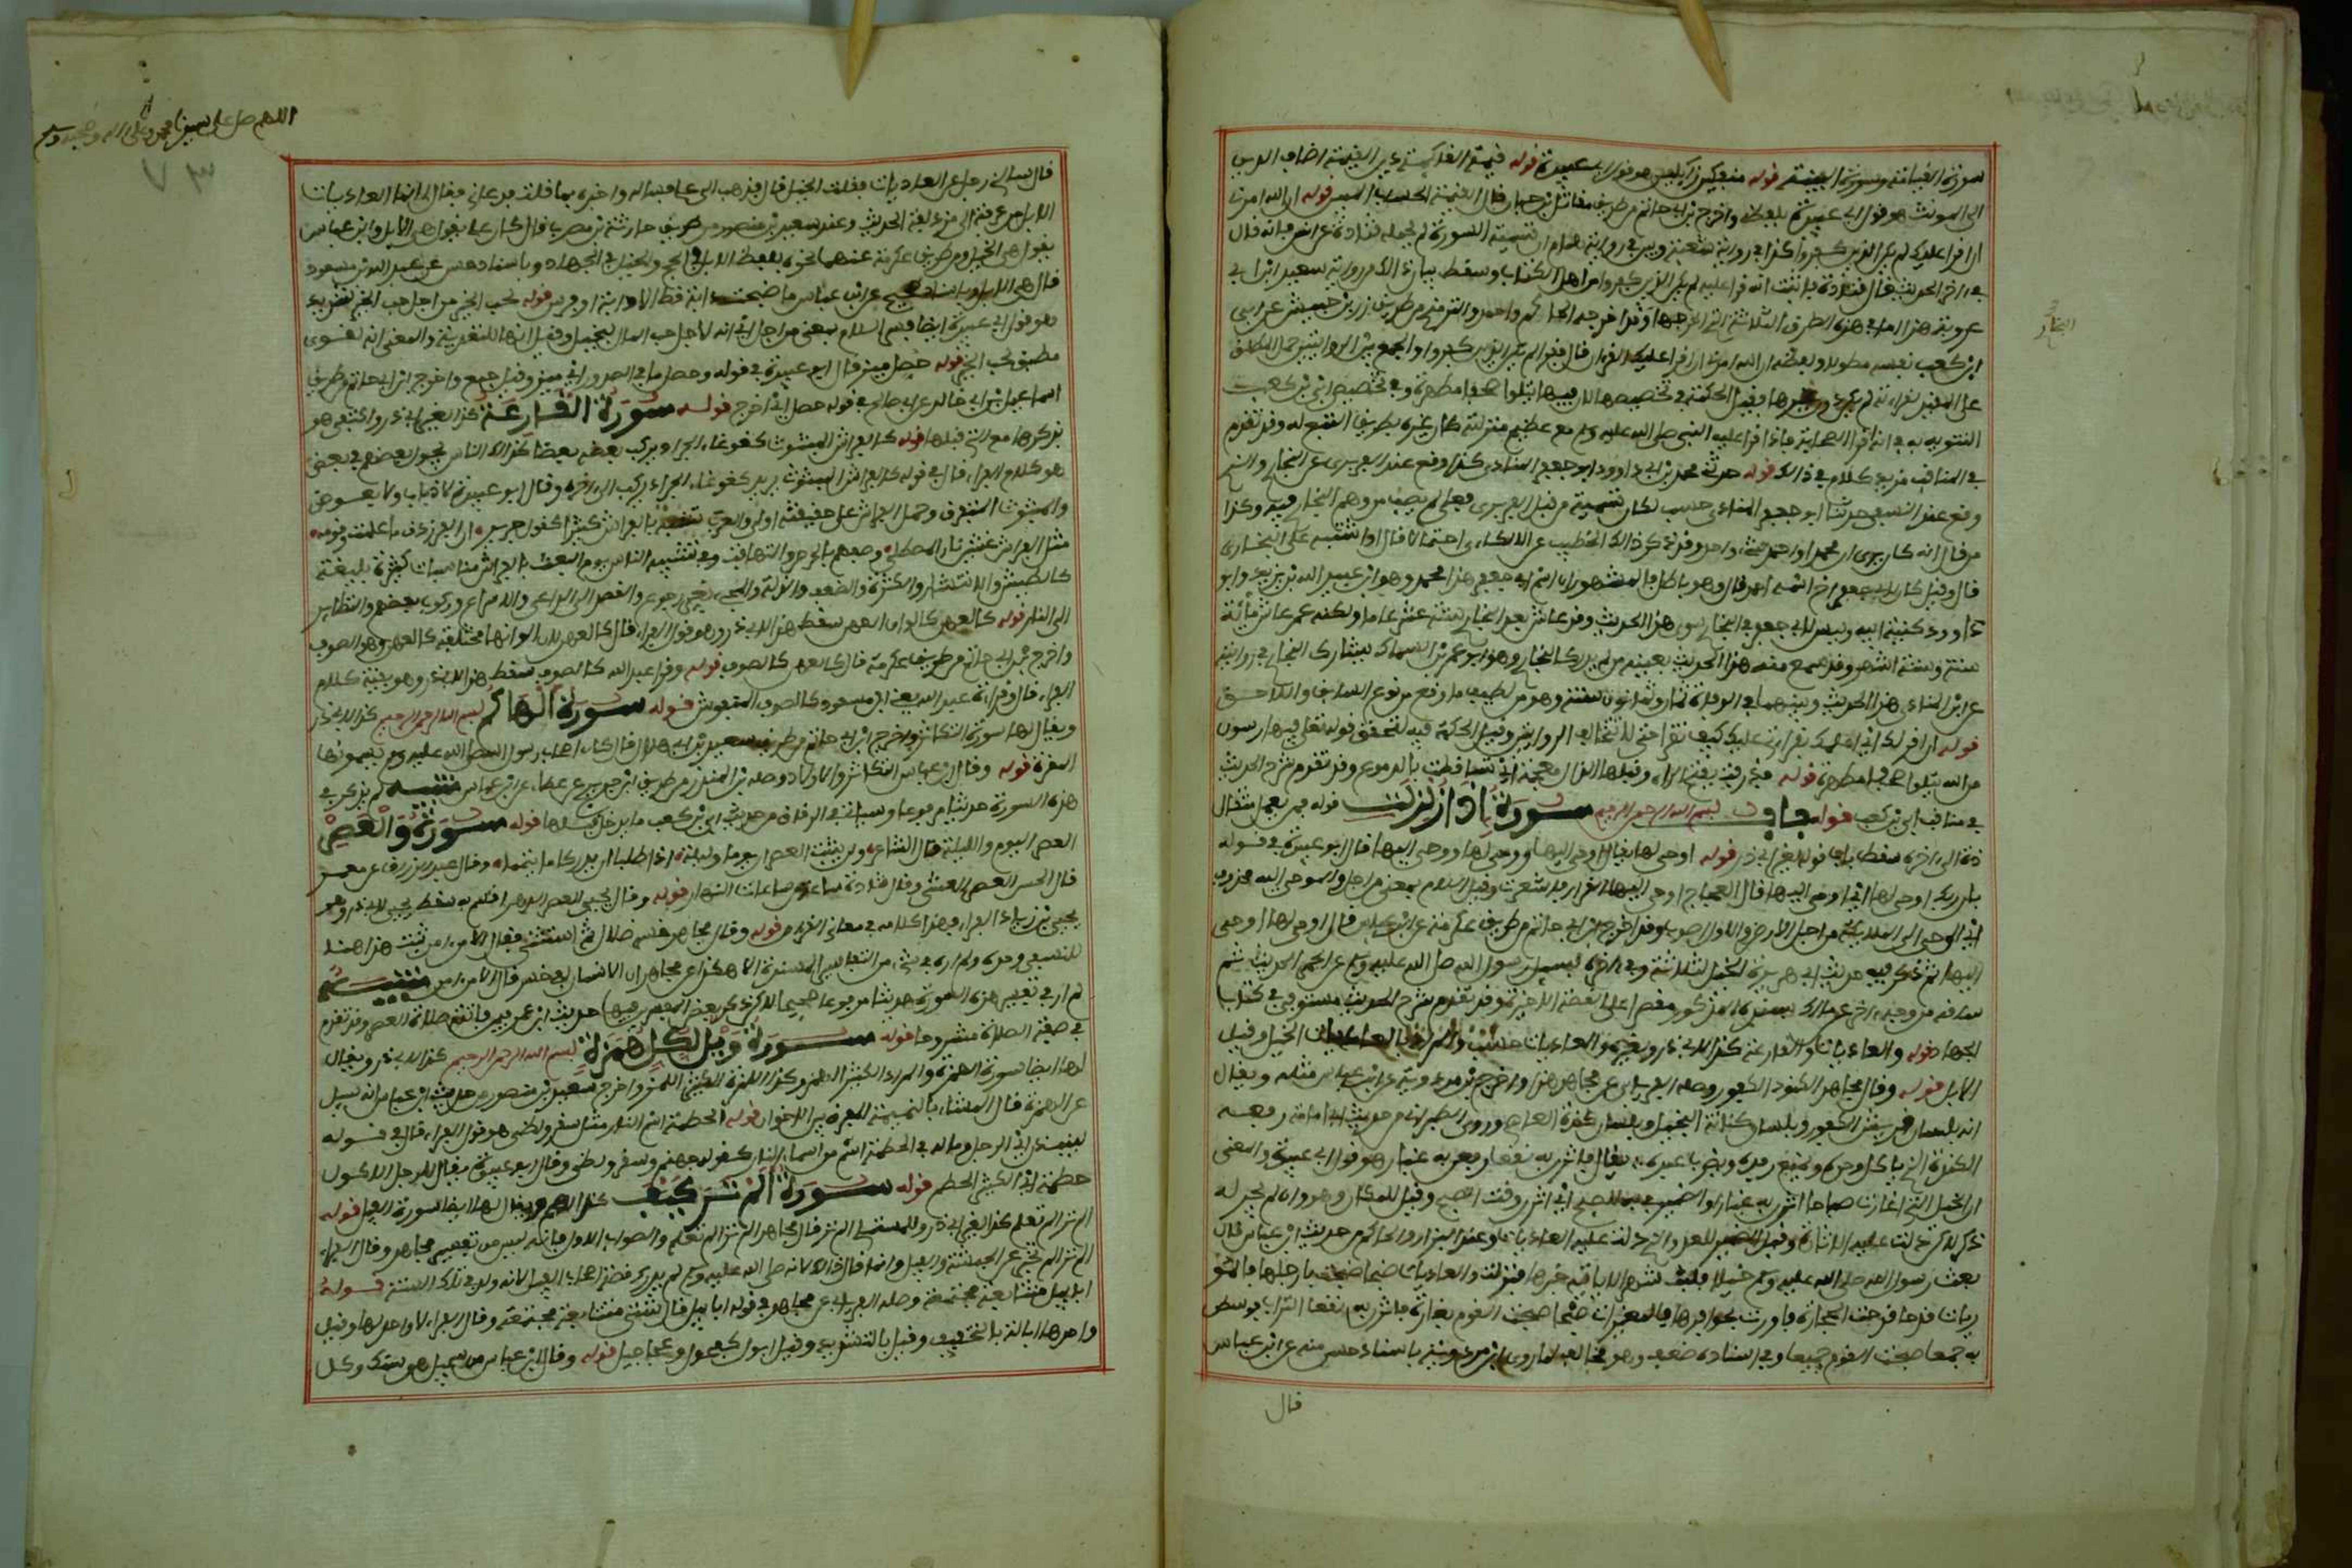 سورة القيامة وسورة البينة قوله منفكين زائلين هو قول ابي عبيدة قوله قيمة القائمة دين القيمة اضاف الدين
الى المونث هو قول ابي عبيدة بلفظه واخرج ابن ابي حاتم من طريق مقاتل بن حيان قال القيمة الحساب المبين قوله ان الله امرني
ان اقرا عليك لم يكن الذين كفروا كذا في رواية شعبة وبين في رواية همام ان تسمية السورة لم يحمله قتادة عن انس فانه قال
في اخر الحديث قال قتادة فانبئت انه قرا عليه لم يكن الذين كفروا من اهل الكتاب وسقط بيان ذلك من رواية سعيد بن ابي
عروبة هذا ما في هذه الطرق الثلاثة التي اخرجها وقد اخرجه الحاكم واحمد والترمذي من طريق زر بن حبيش عن ابي
ابن كعب نفسه مطولا ولفظه ان الله امرني ان اقرا عليك القران قال فقرا لم يكن الذين كفروا والجمع بين الروايتين حمل المطلق
على المقيد لقراءته لم يكن دون غيرها وقيل الحكمة في تخصيصها لان فيها يتلوا صحفا مطهرة وفي تخصيص ابي بن كعب
التنويه به في انه اقرا الصحابة فاذا قرا عليه النبي صلى الله عليه وسلم مع عظيم منزلته كان غيره بطريق التبع له وقد تقدم
في المناقب مزيد كلام في ذلك قوله حدثنا محمد بن ابي داوود ابو جعفر المنادي كذا وقع عند الفربري عن البخاري والنسفي
وقع عند النسفي حدثنا ابو جعفر المنادي حسب لكان تسمية من قبل الفربري فعلى لم يصب من وهم البخاري فيه وكذا
من قال انه كان يرى ان محمدا واحمد شيء واحد وقد ذكر ذلك الخطيب عن اللالكائي احتمالا قال او اشتبه على البخاري
قال وقيل كان لابي جعفر اخ اسمه احمد قال وهو باطل والمشهور ان اسم ابي جعفر هذا محمد وهو ابن عبيد الله بن يزيد وابو
داوود كنية ابيه وليس لابي جعفر في البخاري سوى هذا الحديث وقد عاش بعد البخاري ستة عشر عاما ولكنه عمر عاش مائة
سنة وسنة واشهر وقد سمع منه هذا الحديث بعينه من لم يدرك البخاري وهو ابو عمرو بن السماك فشارك البخاري في روايته
عن ابن المنادي هذا الحديث وبينهما في الوفاة ثمان وثمانون سنة وهو من لطيف ما وقع من نوع السابق واللاحق
قوله ان اقرئك اي اعلمك بقراءتي عليك كيف تقرا حتى لا تتخالف الروايتين وقيل الحكمة فيه لتحقق قوله تعالى فيها رسول
من الله يتلوا صحفا مطهرة قوله فذرفت بفتح الراء وقبلها الذال معجمة اي تساقطت بالدموع وقد تقدم شرح الحديث
في مناقب ابي بن كعب قوله باب بسم الله الرحمن الرحيم سورة اذا زلزلت قوله فمن يعمل مثقال
ذرة الى اخره سقط باب قوله لغير ابي ذر قوله اوحى لها يقال اوحى اليها ووحى لها ووحى اليها قال ابو عبيدة في قوله
بان ربك اوحى لها اي اوحى اليها قال العجاج اوحى لها القرار فاستقرت وقيل اللام بمعنى من اجل والموحى اليه محذوف
اي اوحى الى الملائكة من اجل الارض والاول اصوب وقد اخرج ابن ابي حاتم من طريق عكرمة عن ابن عباس قال اوحى لها اوحى
اليها ثم ذكر فيه حديث ابي هريرة الخيل لثلاثة وفي اخره فسئل رسول الله صلى الله عليه وسلم عن الحمر الحديث ثم
ساقه من وجه اخر عن مالك بسنده المذكور مقتصرا على القصة الاخيرة وقد تقدم شرح الحديث مستوفى في كتاب
الجهاد قوله والعاديات والقارعة كذا لابي ذر ولغيره والعاديات حسب والمراد بالعاديات الخيل وقيل
الابل قوله وقال مجاهد الكنود الكفور وصله الفريابي عن مجاهد بهذا واخرج ابن مردويه عن ابن عباس مثله ويقال
انه بلسان قريش الكفور وبلسان كنانة البخيل وبلسان كندة العاصي وروى الطبراني من حديث ابي امامة رفعه
الكنود الذي ياكل وحده ويمنع رفده ويضرب عبده يقال فاثرن به نقعا رفعن به غبارا هو قول ابي عبيدة والمعنى
ان الخيل التي اغارت صباحا اثرن به غبارا والضمير في به للصبح اي اثرن وقت الصبح وقيل للمكان وهو وان لم يجر له
ذكر لكن دلت عليه الاثارة وقيل الضمير للعدو الذي دلت عليه العاديات وعند البزار والحاكم من حديث ابن عباس قال
بعث رسول الله صلى الله عليه وسلم خيلا فلبث شهرا لا ياتيه خبرها فنزلت والعاديات ضبحا ضبحت بارجلها فالمو
ريات قدحا قدحت الحجارة فاورت بحوافرها فالمغيرات صبحا صبحت القوم بغارة فاثرن به نقعا التراب فوسطن
به جمعا صبحت القوم جميعا وفي اسناده ضعف وهو مخالف لما روى ابن مردويه باسناد حسن منه عن ابن عباس
قال
البخاري
اللهم صل على سيدنا محمد وعلى اله وصحبه وسلم
قال سالني رجل عن العاديات فقلت الخيل قال فذهب الى علي فساله واخبره بما قلت فدعاني فقال لي انما العاديات
الابل من عرفة الى مزدلفة الحديث وعند سعيد بن منصور من طريق حارثة بن مضرب قال كان علي يقول هي الابل وابن عباس
يقول هي الخيل ومن طريق عكرمة عنهما نحوه بلفظ الابل في الحج والخيل في الجهاد وباسناد حسن عن عبد الله بن مسعود
قال هي الابل وباسناد صحيح عن ابن عباس ما ضبحت دابة قط الا دابة او فرس قوله لحب الخير من اجل حب الخير لشديد
هو قول ابي عبيدة ايضا فسر اللام بمعنى من اجل اي انه لاجل حب المال لبخيل وقيل انها للتعدية والمعنى انه لقوي
مطيق لحب الخير قوله حصل ميز قال ابو عبيدة في قوله وحصل ما في الصدور اي ميز وقيل جمع واخرج ابن ابي حاتم من طريق
اسماعيل بن ابي خالد عن ابي صالح في قوله حصل اي اخرج قوله سورة القارعة كذا لغير ابي ذر واكتفى هو
بذكرها مع التي قبلها قوله كالفراش المبثوث كغوغاء الجراد يركب بعضه بعضا كذلك الناس يجول بعضهم في بعض
هو كلام الفراء قال في قوله كالفراش المبثوث يريد كغوغاء الجراد يركب الى اخره وقال ابو عبيدة لا ذباب ولا بعوض
والمبثوث المتفرق وحمل الفراش على حقيقته اولى والعرب تشبه بالفراش كثيرا كقول جرير ان الفرزدق ما علمت وقومه
مثل الفراش غشين نار المصطلي وصفهم بالحرص والتهافت وفي تشبيه الناس يوم البعث بالفراش مناسبات كثيرة بليغة
كالطيش والانتشار والكثرة والضعف والذلة والمجيء بغير رجوع والقصد الى الداعي والاسراع وركوب بعضهم والتطاير
الى النار قوله كالعهن كالوان العهن سقط هذا لابي ذر وهو قول الفراء قال كالعهن لان الوانها مختلفة كالعهن وهو الصوف
واخرج ابن ابي حاتم من طريق عكرمة قال كالعهن كالصوف قوله وقرا عبد الله كالصوف سقط هذا لابي ذر وهو بقية كلام
الفراء قال وقراءة عبد الله يعني ابن مسعود كالصوف المنفوش قوله سورة الهاكم بسم الله الرحمن الرحيم كذا لابي ذر
ويقال لها سورة التكاثر واخرج ابن ابي حاتم من طريق سعيد بن ابي هلال قال كان اصحاب رسول الله صلى الله عليه وسلم يسمونها
المقرة قوله وقال ابن عباس التكاثر من الاموال والاولاد وصله ابن المنذر من طريق ابن جريج عن عطاء عن ابن عباس تنبيه لم يذكر في
هذه السورة حديثا مرفوعا وسياتي في الرقاق من حديث ابي بن كعب ما يدخل فيها قوله سورة والعصر
العصر اليوم والليلة قال الشاعر ولن يلبث العصران يوما وليلة اذا طلبا ان يدركا ما تيمما وقال عبد الرزاق عن معمر
قال الحسن العصر العشي وقال قتادة ساعة من ساعات النهار قوله وقال يحيى العصر الدهر اقسم به سقط يحيى لابي ذر وهو
يحيى بن زياد الفراء وهذا كلامه في معاني القران قوله وقال مجاهد خسر ضلال ثم استثنى فقال الا من امن ثبت هذا هنا
للنسفي وحده ولم اره في شيء من التفاسير المسندة الا هكذا عن مجاهد ان الانسان لفي خسر قال الا من امن تنبيه
لم ار في تفسير هذه السورة حديثا مرفوعا صحيحا لكن ذكر بعض المفسرين فيها حديث ابن عمر من فاتته صلاة العصر وقد تقدم
في صفة الصلاة مشروحا قوله سورة ويل لكل همزة بسم الله الرحمن الرحيم كذا لابي ذر ويقال
لها ايضا سورة الهمزة والمراد الكثير الهمز وكذا اللمزة الكثير اللمز واخرج سعيد بن منصور من حديث ابن عباس انه سئل
عن الهمزة قال المشاء بالنميمة المفرق بين الاخوان قوله الحطمة اسم النار مثل سقر ولظى هو قول الفراء قال في قوله
لينبذن اي الرجل وماله في الحطمة اسم من اسماء النار كقوله جهنم وسقر ولظى وقال ابو عبيدة يقال للرجل الاكول
حطمة اي الكثير الحطم قوله سورة الم تر كيف كذا لهم ويقال لها ايضا سورة الفيل قوله
الم تر الم تعلم كذا لغير ابي ذر وللمستملي الم تر قال مجاهد الم تر الم تعلم والصواب الاول فانه ليس من تفسير مجاهد وقال الفراء
الم تر الم تخبر عن الحبشة والفيل وانما قال ذلك لانه صلى الله عليه وسلم لم يدرك قصة اصحاب الفيل لانه ولد في تلك السنة قوله
ابابيل متتابعة مجتمعة وصله الفريابي عن مجاهد في قوله ابابيل قال شتى متتابعة مجتمعة وقال الفراء لا واحد لها وقيل
واحدها ابالة بالتخفيف وقيل بالتشديد وقيل ابول كعجول وعجاجيل قوله وقال ابن عباس من سجيل هي سنك وكل